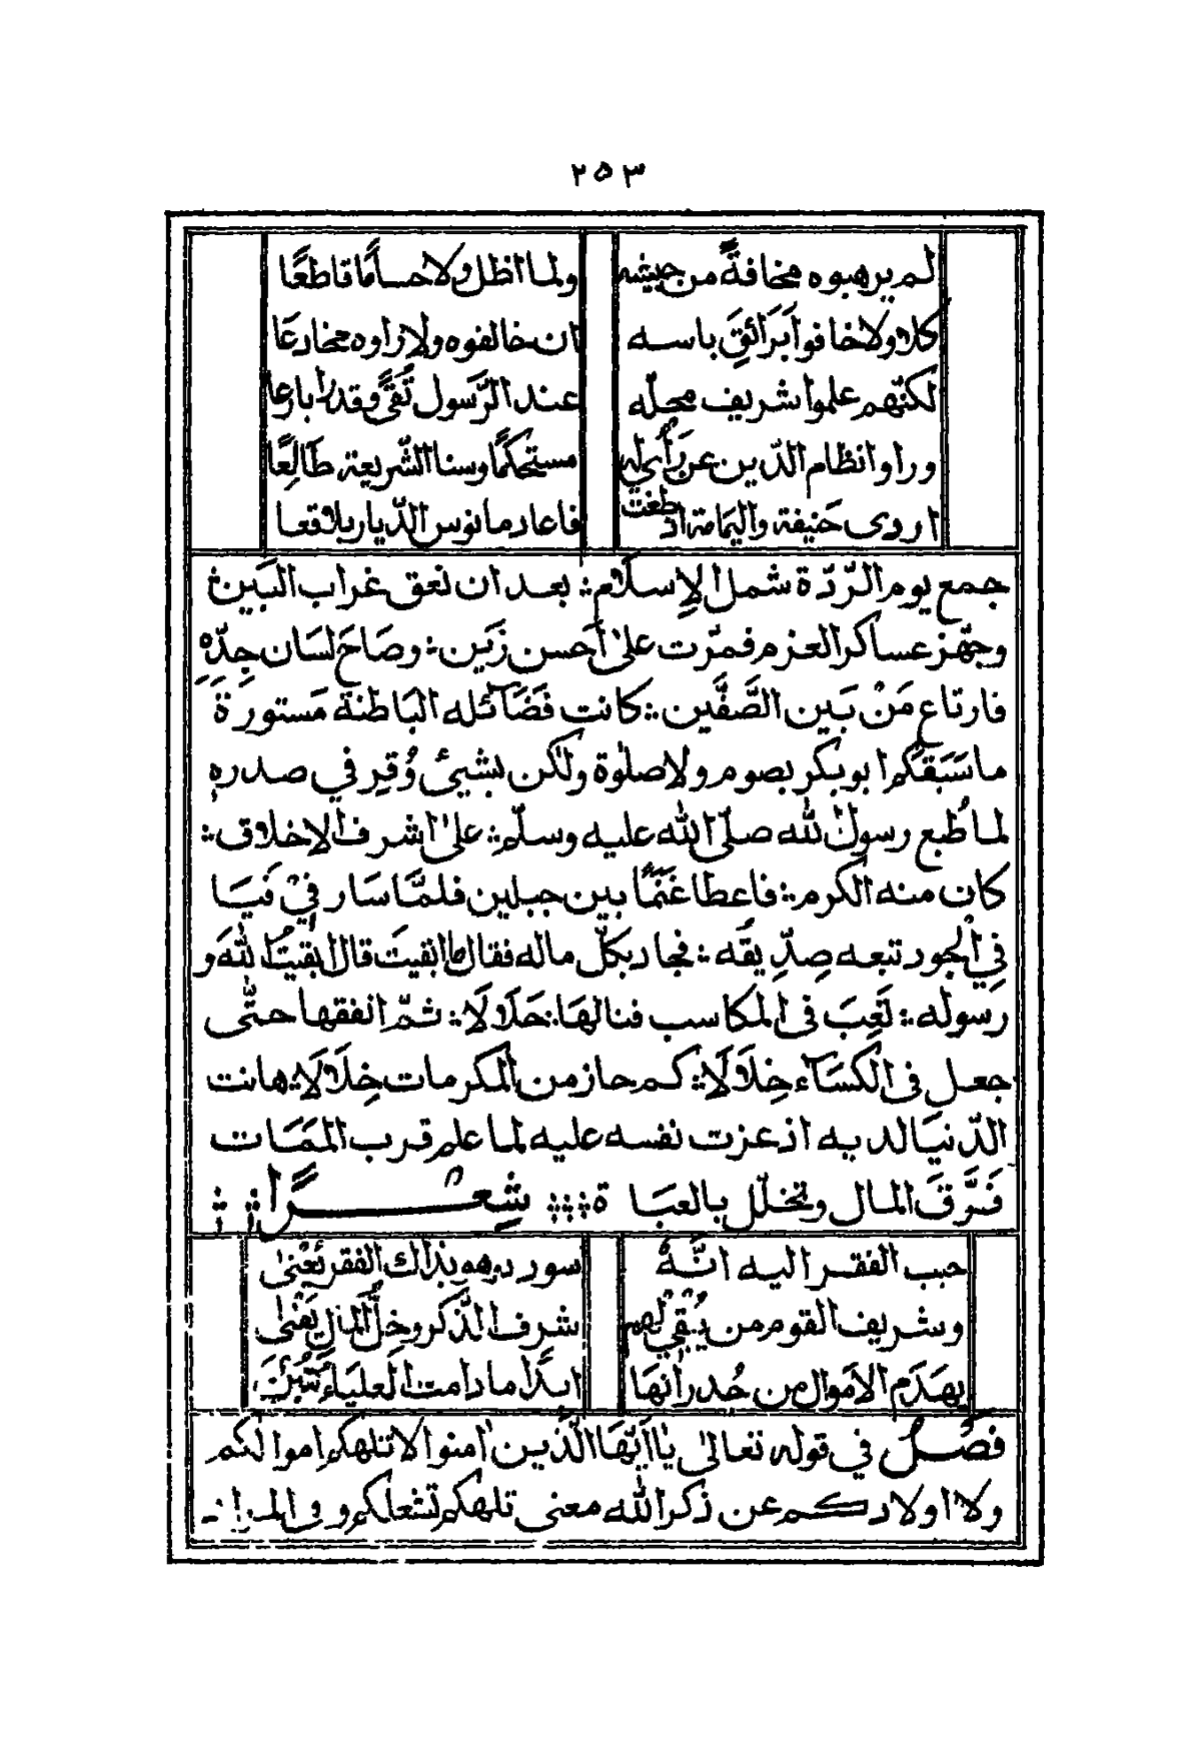 ٢٥٣
لم يرهبوه مخافةً من جيشه ولما اظل ولا حسامًا قاطعًا
كلا ولا خافوا بَرَائقَ باسه ان خالفوه ولا راوه مخادعَا
لكنّهم علموا شريف محلّه عند الرّسول تُقًى وقدرا بارعا
وراوا نظام الدّين عن رَأىٍ له مستحكمًا وسنا الشّريعة طَالِعًا
اردى حَنيفة واليمامة اذ طغت فاعاد مانوس الدّيار بلاقعا
جمع يوم الرّدّة شمل الإِسلام ؞ بعد ان نعق غراب البَين ؞
وجهّز عساكر العزم فمرّت علىٰ أَحسن زَين ؞ وصَاحَ لسَان جِدّهِ
فارتاع مَنْ بَين الصَّفَّين ؞ كانت فَضَائله البَاطنة مَستورة
ما سَبَقَكم ابو بكر بصوم ولا صلوٰة ولٰكن بشيئ وُقِر في صدره
لما طُبع رسول الله صلّى الله عليه وسلّم ؞ علىٰ اشرف الاخلاق ؞
كان منه الكرم ؞ فاعطا غَنَمًا بين جبلين فلمَّا سَار فيْ فَيَا
فِي الجُود تبعه صِدِّيقُه ؞ فجاد بكلّ ماله فقال ما ابقيتَ قال ابقيتُ اللهَ و
رسوله ؞ تَعِبَ فى المكاسب فنالهَا حَلَالَا ؞ ثمّ انفقها حتّى
جعل فى الكسَآء خِلَالَا ؞ كم حاز من المكرمات خِلَالَا ؞ هانت
الدّنيَا لديه اذ عزت نفسه عليه لما علم قرب المَمَات
فَرَّقَ المال وتخلّل بالعبَاة ؞ شِعْرًا ؞
حبب الفقر اليه انَّهُ سودده بذاك الفقر يُعْنىٰ
وشريف القوم من يُبْقيْ لهم شرف الذّكر وخِلُّ المَال يَفْنىٰ
يهدم الاموال من جُدرانهَا ابدًا ما دامت العليَاءُ تُبْنَىٰ
فصْلٌ في قوله تعالىٰ يٰاايّهَا الّذين اٰمنوا لا تلهكم اموالكم
ولا اولادكم عن ذكر الله معنى تلهكم تشغلكم وفى المراد